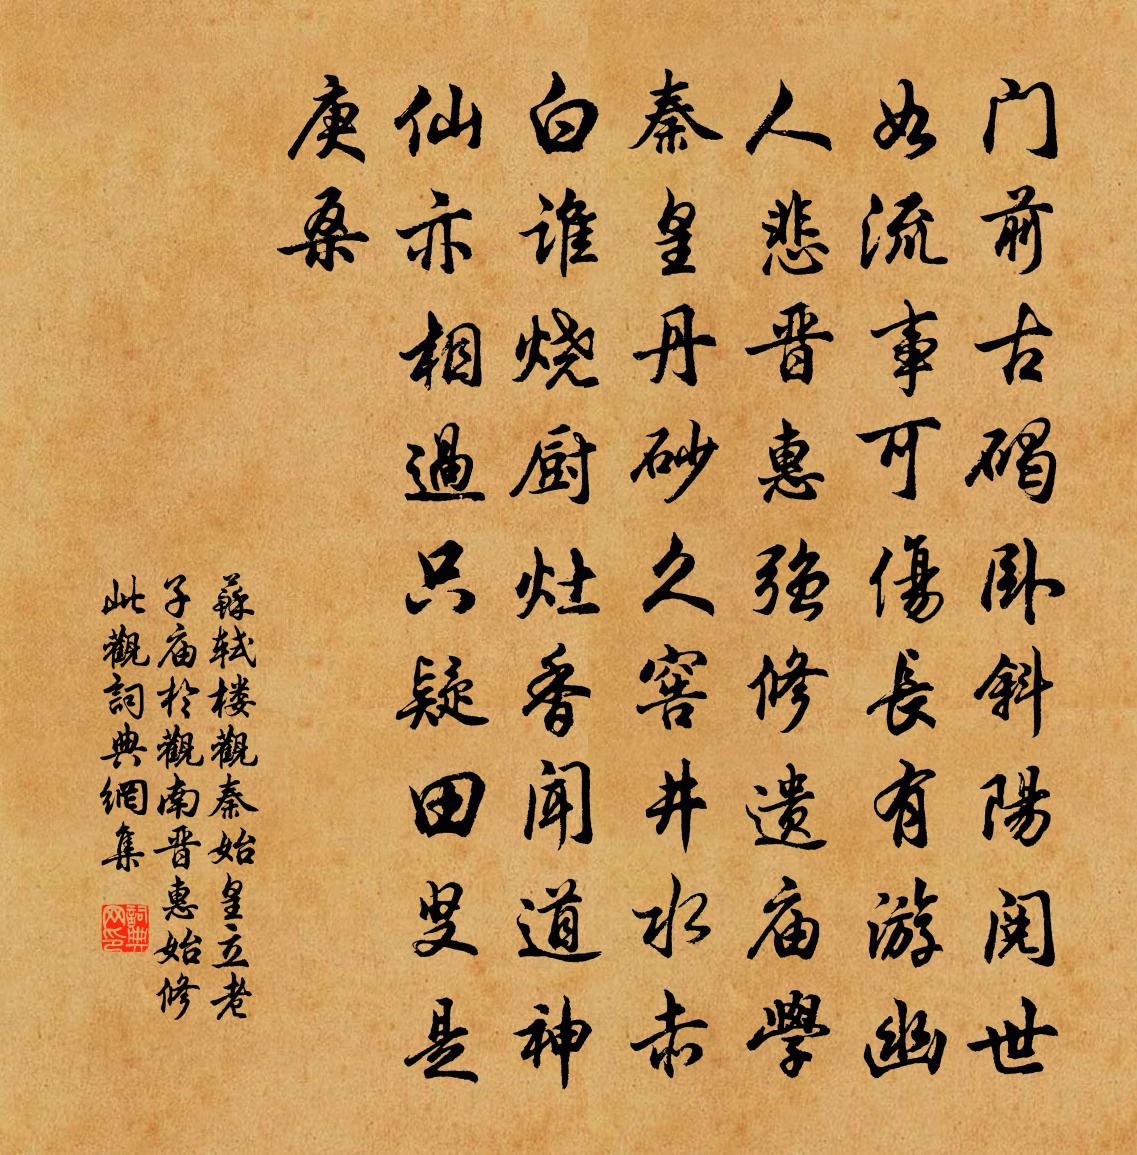 门前古碣卧斜陽阅世
如流事可傷長有游幽
人悲晋惠强修遗庙學
秦皇丹砂久窖井水赤
白谁烧厨灶香闻道神
仙亦相過只疑田叟是
庚桑
蘇轼楼觀秦始皇立老
子庙於觀南晋惠始修
此觀詞典網集
詞典网印